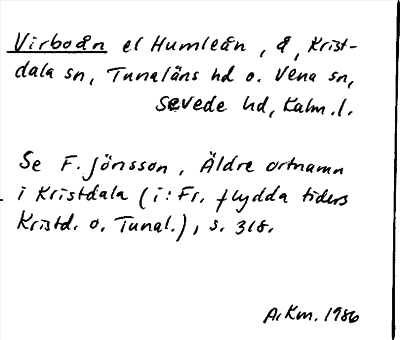 Virboån el Humleån, å, Krist-
dala sn, Tunaläns hd o. Vena sn,
Sevede hd, Kalm.l.
Se F. Jönsson, Äldre ortnamn
i Kristdala (i: Fr. flydda tiders
Kristd. o. Tunal.), s. 318.
A.Km. 1986